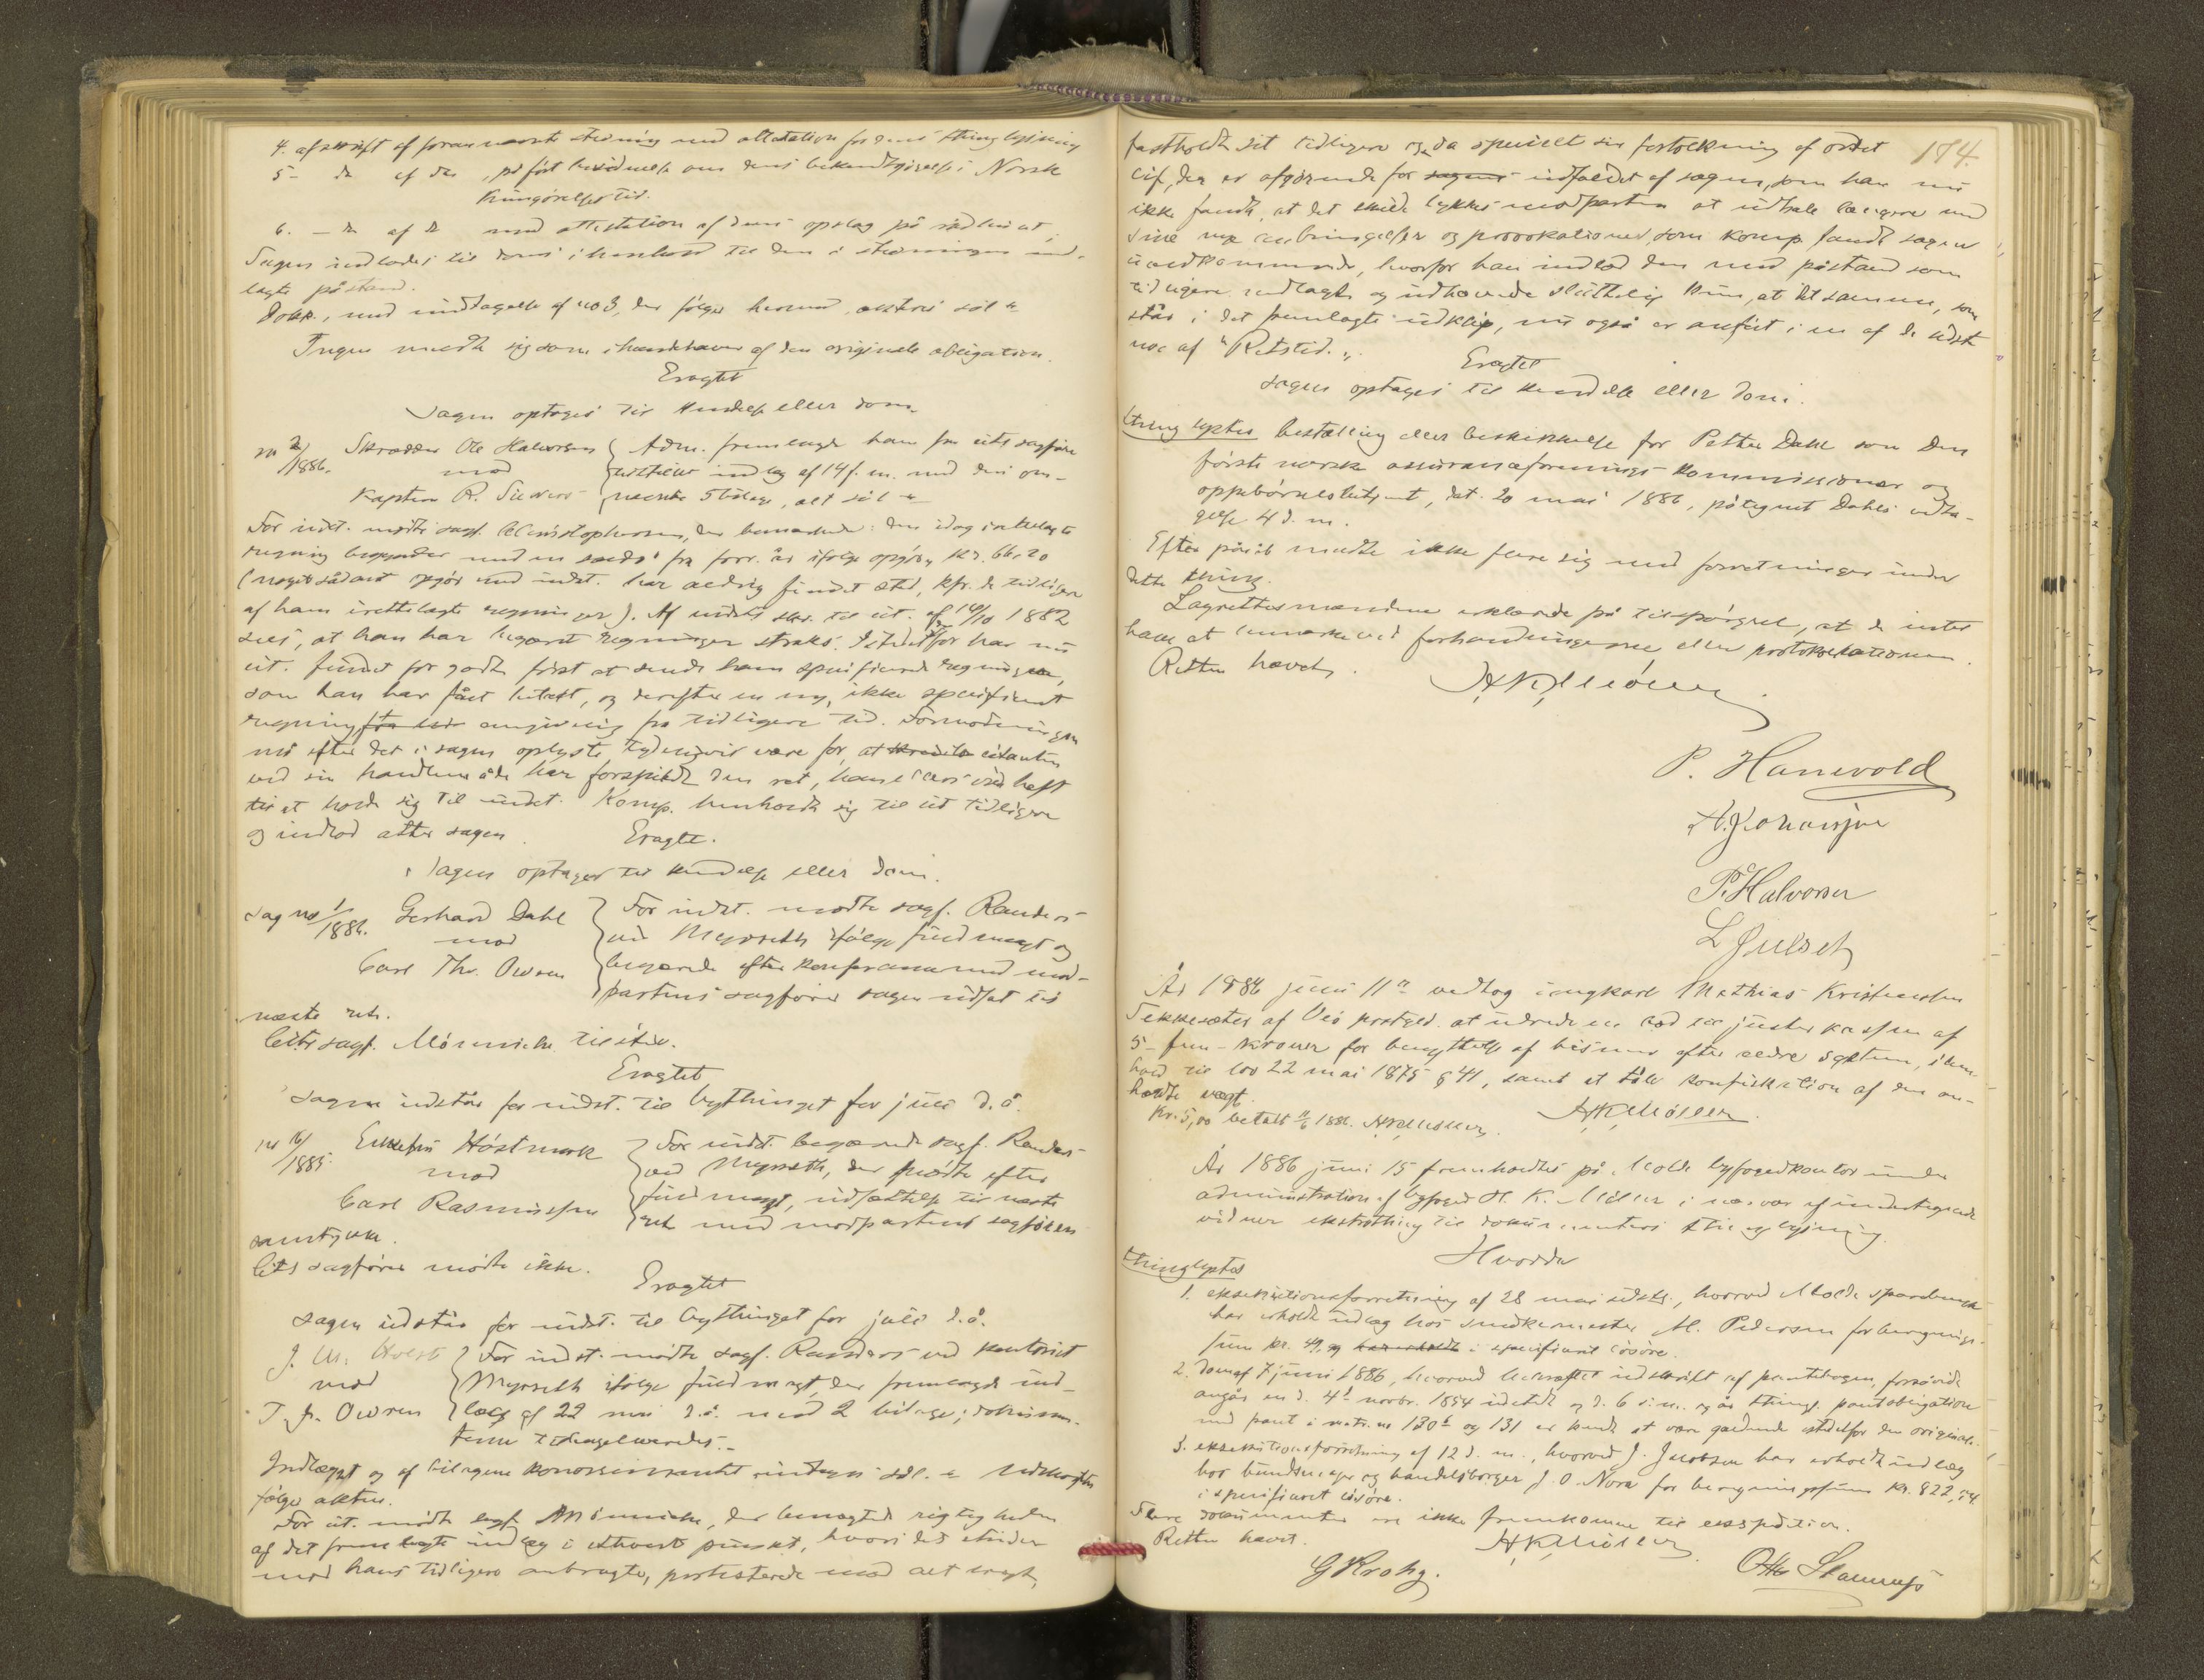 4. afskrift af forannævnte stevning med attestation for dens thinglysning
5 - do af do, påført bevidnelse om dens bekendtgjørelse i Norsk
Kungørelsestid.
6. - do af do med attestation af dens opslag på rådhuset.
Sagen indlodes til dom i henhold til den i stevningen ned-
lagte påstand.
Dokr., med undtagelse af no 3, der følger herved, aktors sål "
Ingen meldte sig som ihændehaver af den originale obligation.
Eragtet
Sagen optages til kendelse eller dom.
no 2/1886. Skrædder Ole Halvorsen
mod
Kaptein R. Sievers
Adm. fremlagde ham fra cits sagfører
tilstillet indlæg af 14 f. m. med deri om-
nævnte 5 bilage, alt sål "
For indst. mødte sagf. Christophersen, der bemærkede: den idag irettelagte
regning begynder med en saldo fra forr. år ifølge opgjør, kr. 66,20
(noget sådant opgjør med indst. har aldrig fundet sted, kfr. de tidligere
af ham irettelagte regninger). Af indsts skr. til cit. af 14/10 1882
sees, at han har begært regninger straks. Istedetfor har nu
cit. fundet for godt først at sende ham specificerede regninger,
som han har fået betalt, og derefter en ny, ikke specificeret
regning fra angivelig fra tidligere tid. Formodningen
må efter det i sagen oplyste tydeligvis være for, at citanten
ved sin handlemåde har forspildt den ret, han ellers vilde haft
til at holde sig til indst. Komp. henholdt sig til sit tidligere
og indlod atter sagen.
Eragtet.
Sagen optages til kendelse eller dom.
Sag no 1/1886. Gerhard Dahl
mod
Carl Thr. Owren
For indst. mødte sagf. Randers
ved Myrseth ifølge fuldmagt og
begærede efter konferanse med mod-
partens sagfører sagen udsat til
næste ret.
Cits sagf. Mörmiche tilstede.
Eragtet
Sagen udstår for indst. til bythinget for juli d. å.
no 16/1885. Høstmark
mod
Carl Rasmussen
For indst. begærede sagf. Randers
ved Myrseth, der mødte efter
fuldmagt, udsættelse til næste
ret med modpartens sagførers
samtykke.
Cits sagfører mødte ikke.
Eragtet
Sagen udstår for indst. til bythinget for juli d. å.
J. M. Holst
mod
T. fr. Owren
For indst. mødte sagf. Randers ved kontorist
Myrseth ifølge fuldmagt, der fremlagde ind-
læg af 22 mai d. å. med 2 bilage; dokumen-
terne
Indlægget og af bilagene konossementet indtages sål. "
følge akten.
For cit. mødte sagf. Mörmiche, der benægtede rigtigheden
af det fremlagte indlæg i ethvert punkt, hvori det strider
mod hans tidligere anbragte, protesterede mod alt sagt,
174.
fastholdt sit tidligere og da specielt sin fortolkning af ordet
cif, der er afgørende for sagens udfaldet af sagen, som han nu
ikke fandt, at det skulde lykkes modparten at udhale længere med
sine nye anbringelser og provokationer, som komp. fandt sagen
uvedkommende, hvorfor han indlod den med påstand som
tidligere nedlagt og udhævede sluttelig kun, at det samme, som
står i det fremlagte udklip, nu også er anført i en af de sidste
noe af "Retstid."
Eragtet
Sagen optages til kendelse eller dom.
Thinglystes bestalling eller beskikkelse for Petter Dahl som Den
første norske assuranceforenings kommissionær og
oppebørselsbetjent, dat. 20 mai 1886, påtegnet Dahls vedta-
gelse 4 d. m.
Efter påråb meldte ikke flere sig med forretninger under
dette thing.
Lagrettesmændene erklærede på tilspørgsel, at de intet
have at bemærke ved forhandlingerne eller protokollationen.
Retten hævet.
H.K. Müller
P. Hanevold
A. Johansen
P. Halvorsen
L Julset
År 1886 juni 11te vedtog ungkarl Mathias Kristensen
Tekkesæter af Veö prestgd. at udrede en bod til justerkassen af
5 - fem - kroner for benyttelse af bismer efter ældre system, i hen-
hold til lov 22 mai 1875 § 41, samt at tåle konfiskation af den an-
holdte vægt.
H.K. Müller
Kr. 5,00 betalt 11/6 1886. H.K. Müller.
År 1886 juni 15 fremholdtes på Molde byfogedkontor under
administration af byfoged H. K. Müller i nærvær af undertegnede
vidner ekstrathing til dokumenters thinglysning.
Hvorda
thinglystes
1. eksekutionsforretning af 28 mai sidstl., hvorved Molde sparebank
har erholdt udlæg hos snedkermester M. Pedersen for beregnings-
sum kr. 49, i specificeret løsøre.
2. dom af 7 juni 1886, hvorved bekræftet udskrift af pantebogen, forsåvidt
angår en d. 4de novbr. 1854 udstedt og d. 6 s. m. og år thingl. pantobligation
med pant i matr. no 130b og 131 er kendt at være gældende istedetfor den originale.
3. eksekutionsforretning af 12 d. m., hvorved J. Jacobsen har erholdt udlæg
hos bundtmager og handelsborger J. O. Nora for beregningssum kr. 822,54
i specificeret løsøre.
Flere dokumenter ere ikke fremkomne til ekspedition.
Retten hævet.
H.K. Müller
G Krohg.
Otto